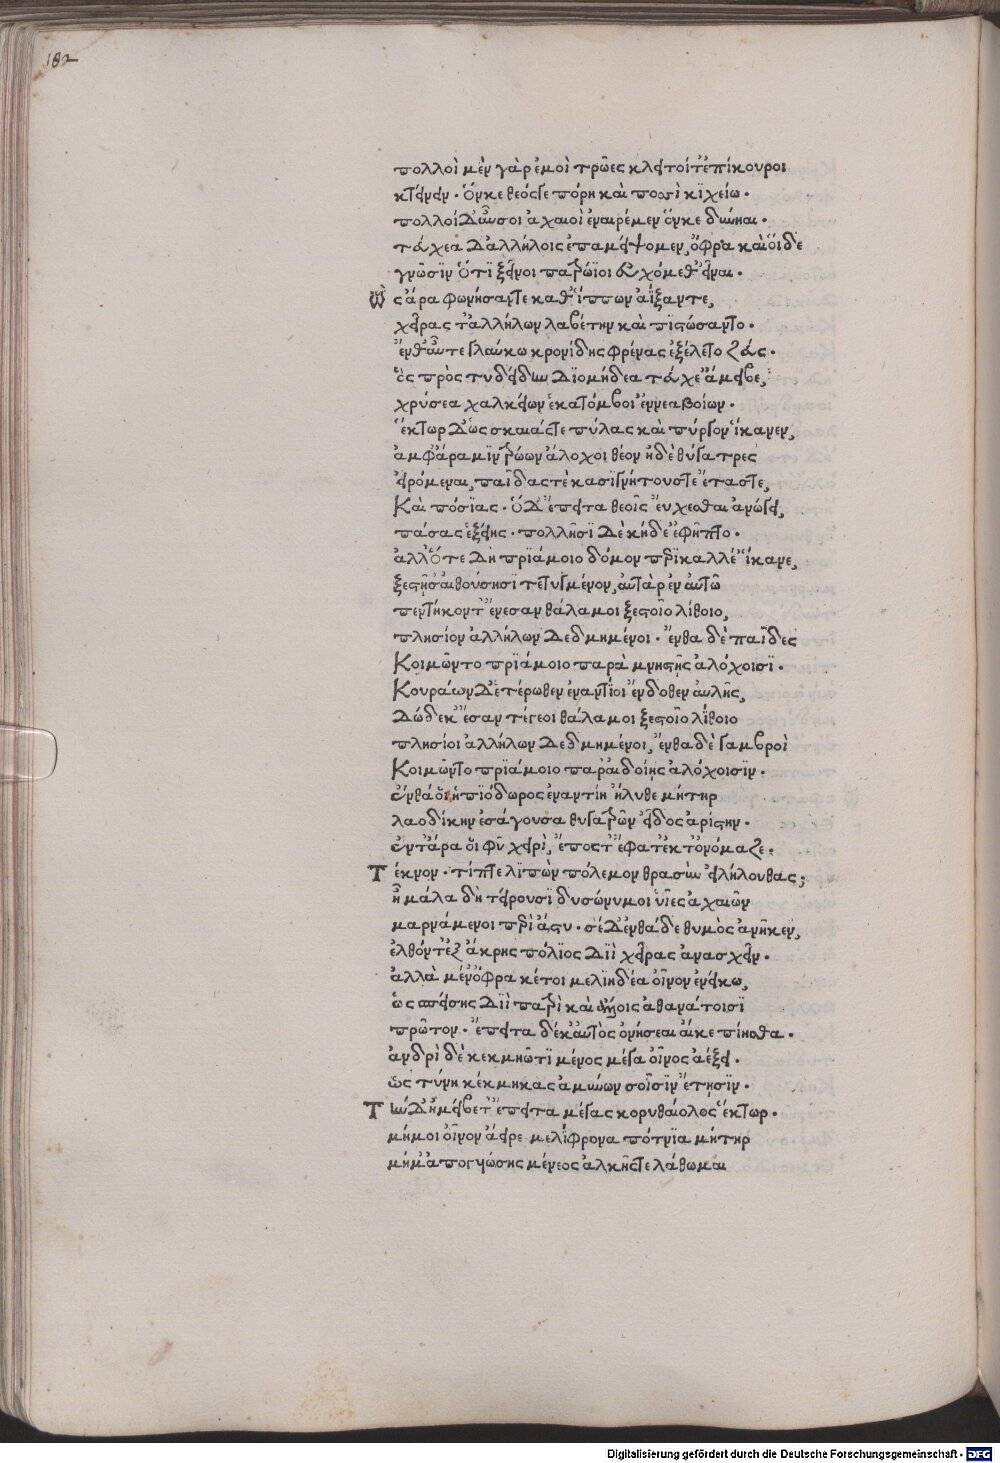 182
πολλοὶ μὲν γὰρ ἐμοὶ τρῶες κλειτοί τ' ἐπίκουροι
κτείνειν· ὅν κε θεός γε πόρῃ καὶ ποσὶ κιχείω·
πολλοί δ' αὖ σοι ἀχαιοὶ ἐναιρέμεν ὅν κε δύνηαι·
τεύχεα δ' ἀλλήλοις ἐπαμείψομεν, ὄφρα καὶ οἵδε
γνῶσιν ὅτι ξεῖνοι πατρώϊοι εὐχόμεθ' εἶναι·
ὣς ἄρα φωνήσαντε καθ' ἵππων ἀΐξαντε,
χεῖρας τ' ἀλλήλων λαβέτην καὶ πιστώσαντο·
ἔνθ' αὖτε γλαύκω κρονίδης φρένας ἐξέλετο ζεύς·
ὃς πρὸς τυδείδην διομήδεα τεύχε' ἄμειβε,
χρύσεα χαλκείων ἑκατόμβοι' ἐννεαβοίων·
ἕκτωρ δ' ὡς σκαιάς τε πύλας καὶ πύργον ἵκανεν,
ἀμφ' ἄρα μιν τρώων ἄλοχοι θέον ἠδὲ θύγατρες
εἰρόμεναι, παῖδας τὲ κασιγνήτους τε ἔτας τε,
καὶ πόσιας· ὁ δ' ἔπειτα θεοῖς εὔχεσθαι ἀνώγει,
πάσας ἑξείης· πολλῇσι δὲ κήδε' ἐφῆπτο·
ἀλλ' ὅτε δὴ πριάμοιο δόμον περικαλλέ' ἵκανε,
ξεστῇς αἰθούσῃσι τετυγμένον, αὐτὰρ ἐν αὐτῶ
πεντήκοντ' ἔνεσαν θάλαμοι ξεστοῖο λίθοιο,
πλησίον ἀλλήλων δεδμημένοι· ἔνθα δὲ παῖδες
κοιμῶντο πριάμοιο παρὰ μνηστῇς ἀλόχοισι·
κουράων δ' ἑτέρωθεν ἐναντίοι ἔνδοθεν αὐλῆς,
δώδεκ' ἔσαν τέγεοι θάλαμοι ξεστοῖο λίθοιο
πλησίοι ἀλλήλων δεδμημένοι, ἔνθα δὲ γαμβροὶ
κοιμῶντο πριάμοιο παρ' αἰδοίῃς ἀλόχοισιν·
ἔνθά οἱ ἠπιόδωρος ἐναντίη ἤλυθε μήτηρ
λαοδίκην ἐσάγουσα θυγατρῶν εἶδος ἀρίστην·
ἔν τ' ἄρα οἱ φῦ χειρὶ, ἔπος τ' ἔφατ' ἔκ τ' ὀνόμαζε·
τέκνον· τίπτε λιπὼν πόλεμον θρασὺν εἰλήλουθας;
ἦ μάλα δὴ τείρουσι δυσώνυμοι υἷες ἀχαιῶν
μαρνάμενοι περὶ ἄστυ· σὲ δ' ἐνθάδε θυμὸς ἀνῆκεν,
ἐλθόντ' ἐξ ἄκρης πόλιος διὶ χεῖρας ἀνασχεῖν·
ἀλλὰ μέν' ὄφρα κέ τοι μελιηδέα οἶνον ἐνείκω,
ὡς σπείσῃς διῒ πατρὶ καὶ ἄλλοις ἀθανάτοισι
πρῶτον· ἔπειτα δέ κ' αὐτὸς ὀνήσεαι αἴκε πίῃσθα·
ἀνδρὶ δὲ κεκμηῶτι μένος μέγα οἶνος ἀέξει·
ὡς τύνη κέκμηκας ἀμύνων σοῖσιν ἔτῃσιν·
τὴν δ' ἠμείβετ' ἔπειτα μέγας κορυθαίολος ἕκτωρ·
μή μοι οἶνον ἄειρε μελίφρονα πότνια μήτηρ
μή μ' ἀπογυιώσῃς μένεος ἀλκῆς τε λάθωμαι
Digitalisierung gefördert durch die Deutsche Forschungsgemeinschaft - DFG